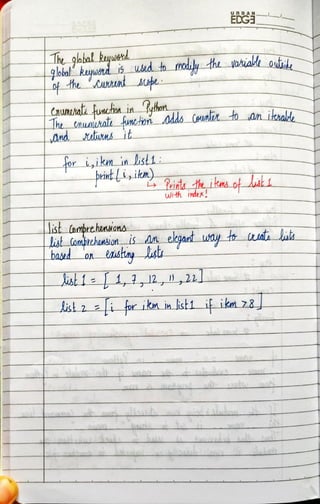 URBAN
EDGE
The global keyword
global keyword is used to modify the variable outside
of the current scope.
Enumerate function in Python
The enumerate function adds counter to an iterable
and returns it
for i, item in list1 :
print (i, item)
↳ Prints the items of list 1
with index!
list Comprehensions
list comprehension is an elegant way to create lists
based on existing lists
list 1 = [ 1, 7, 12, 11, 22]
list 2 = [i for item in list1 if item > 8 ]